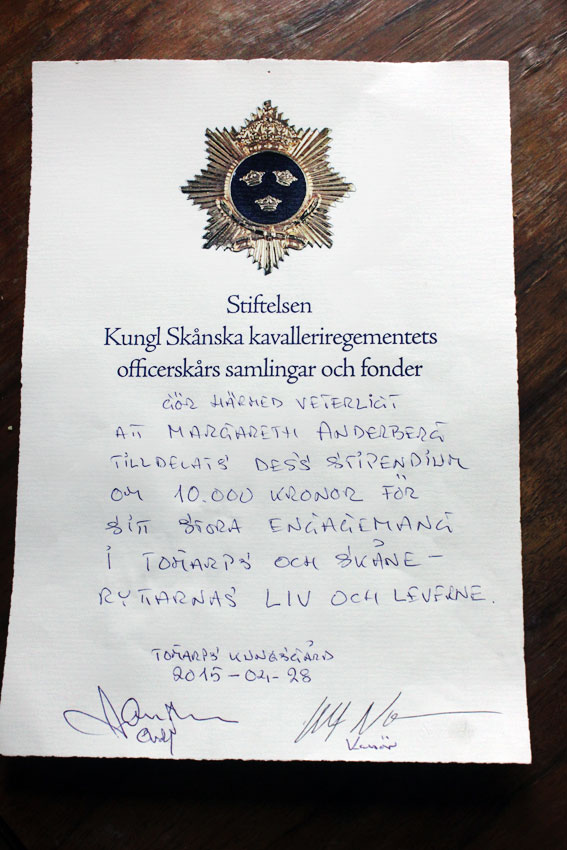 Stiftelsen
Kungl Skånska kavalleriregementets
officerskårs samlingar och fonder
GÖR HÄRMED VETERLIGT
ATT MARGARETH ANDERBERG
TILLDELATS DESS STIPENDIUM
OM 10.000 KRONOR FÖR
SITT STORA ENGAGEMANG
I TOMARPS OCH SKÅNE-
RYTTARNAS LIV OCH LEVERNE.
TOMARPS KUNGSGÅRD
2015-04-28